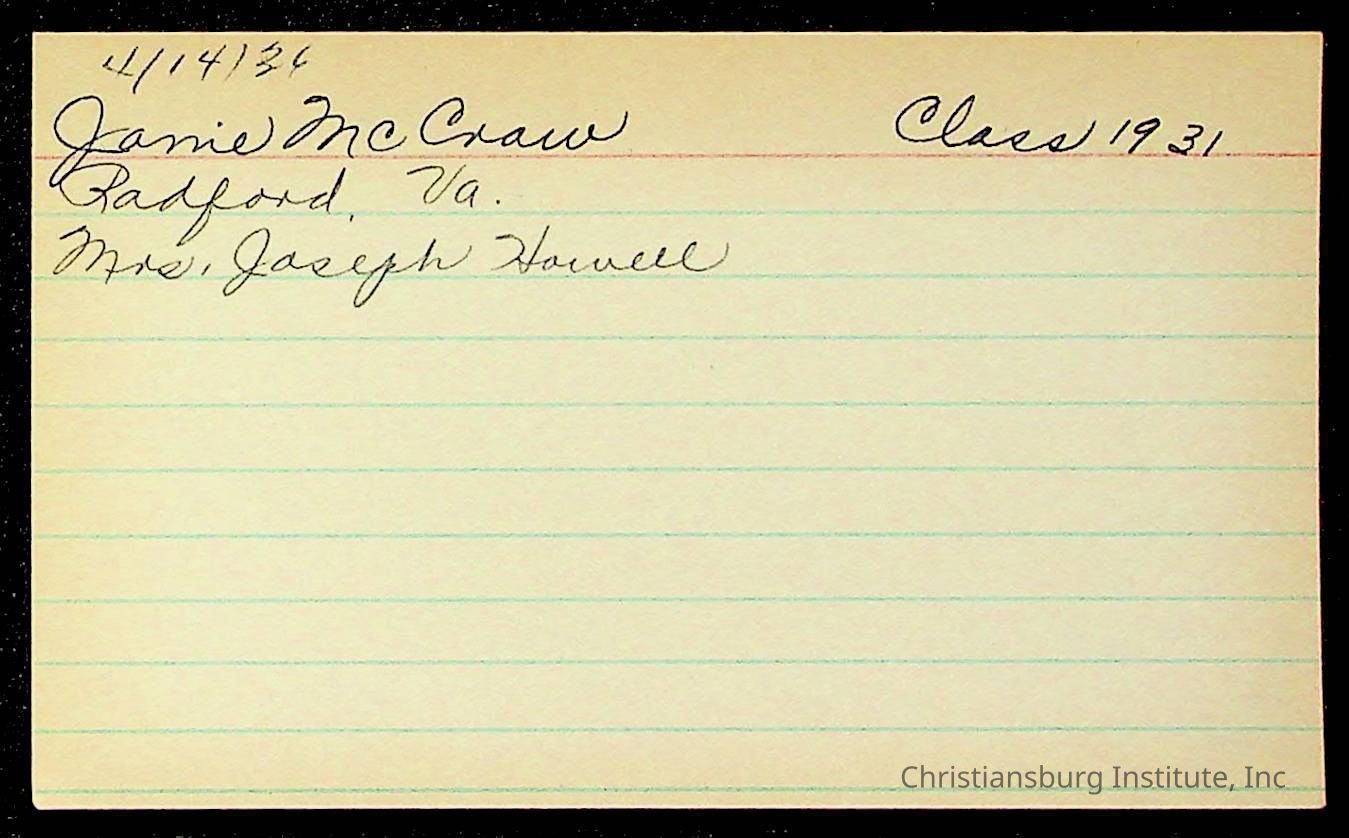 Janie McCraw Class 1931
Radford, Va.
Mrs. Joseph Howell
Christiansburg Institute, Inc